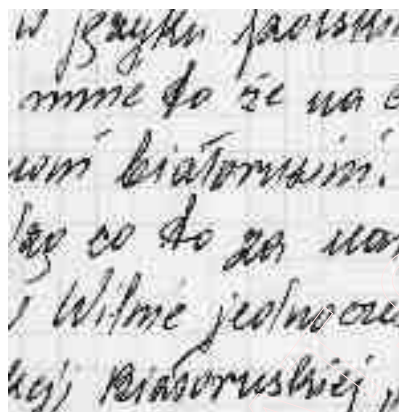 w języku polskim
mnie to że na
białorusini.
co to za
Wilnie jednocze
białoruskiej,